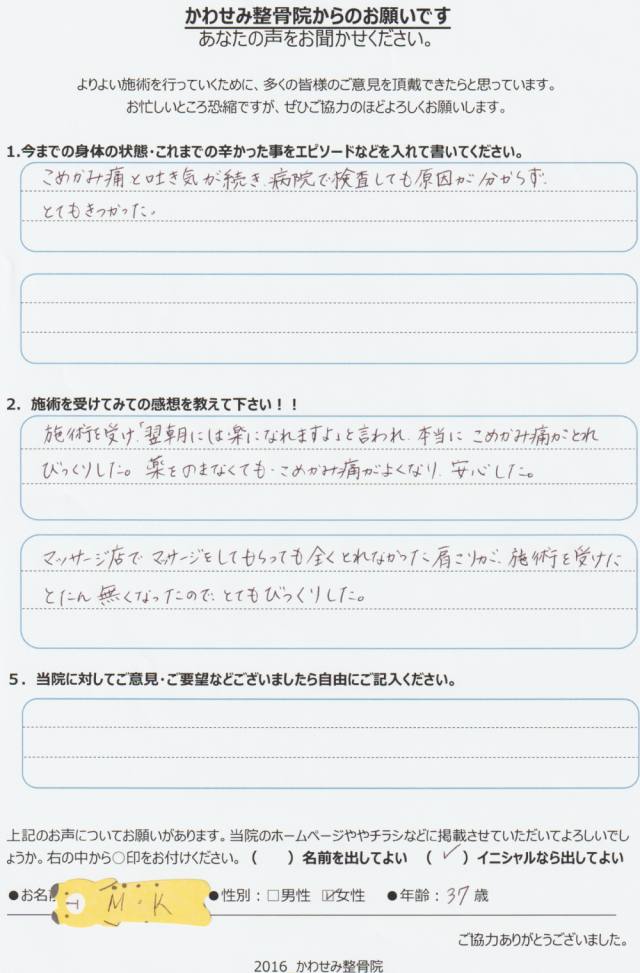 かわせみ整骨院からのお願いです
あなたの声をお聞かせください。
よりよい施術を行っていくために、多くの皆様のご意見を頂戴できたらと思っています。
お忙しいところ恐縮ですが、ぜひご協力のほどよろしくお願いします。
1.今までの身体の状態・これまでの辛かった事をエピソードなどを入れて書いてください。
こめかみ痛と吐き気が続き、病院で検査しても原因が分からず、
とてもきつかった。
2．施術を受けてみての感想を教えて下さい！！
施術を受け、「翌朝には楽になれますよ」と言われ、本当に こめかみ痛がとれ
びっくりした。薬をのまなくても、こめかみ痛がよくなり、安心した。
マッサージ店で マッサージをしてもらっても 全くとれなかった 肩こりが、施術を受けた
とたん 無くなったので、とてもびっくりした。
５．当院に対してご意見・ご要望などございましたら自由にご記入ください。
上記のお声についてお願いがあります。当院のホームページややチラシなどに掲載させていただいてよろしいでし
ょうか。右の中から○印をお付けください。（　　）名前を出してよい　（ ✓ ）イニシャルなら出してよい
●お名前 M・K ●性別：□男性 ☑女性 ●年齢：37 歳
ご協力ありがとうございました。
2016 かわせみ整骨院